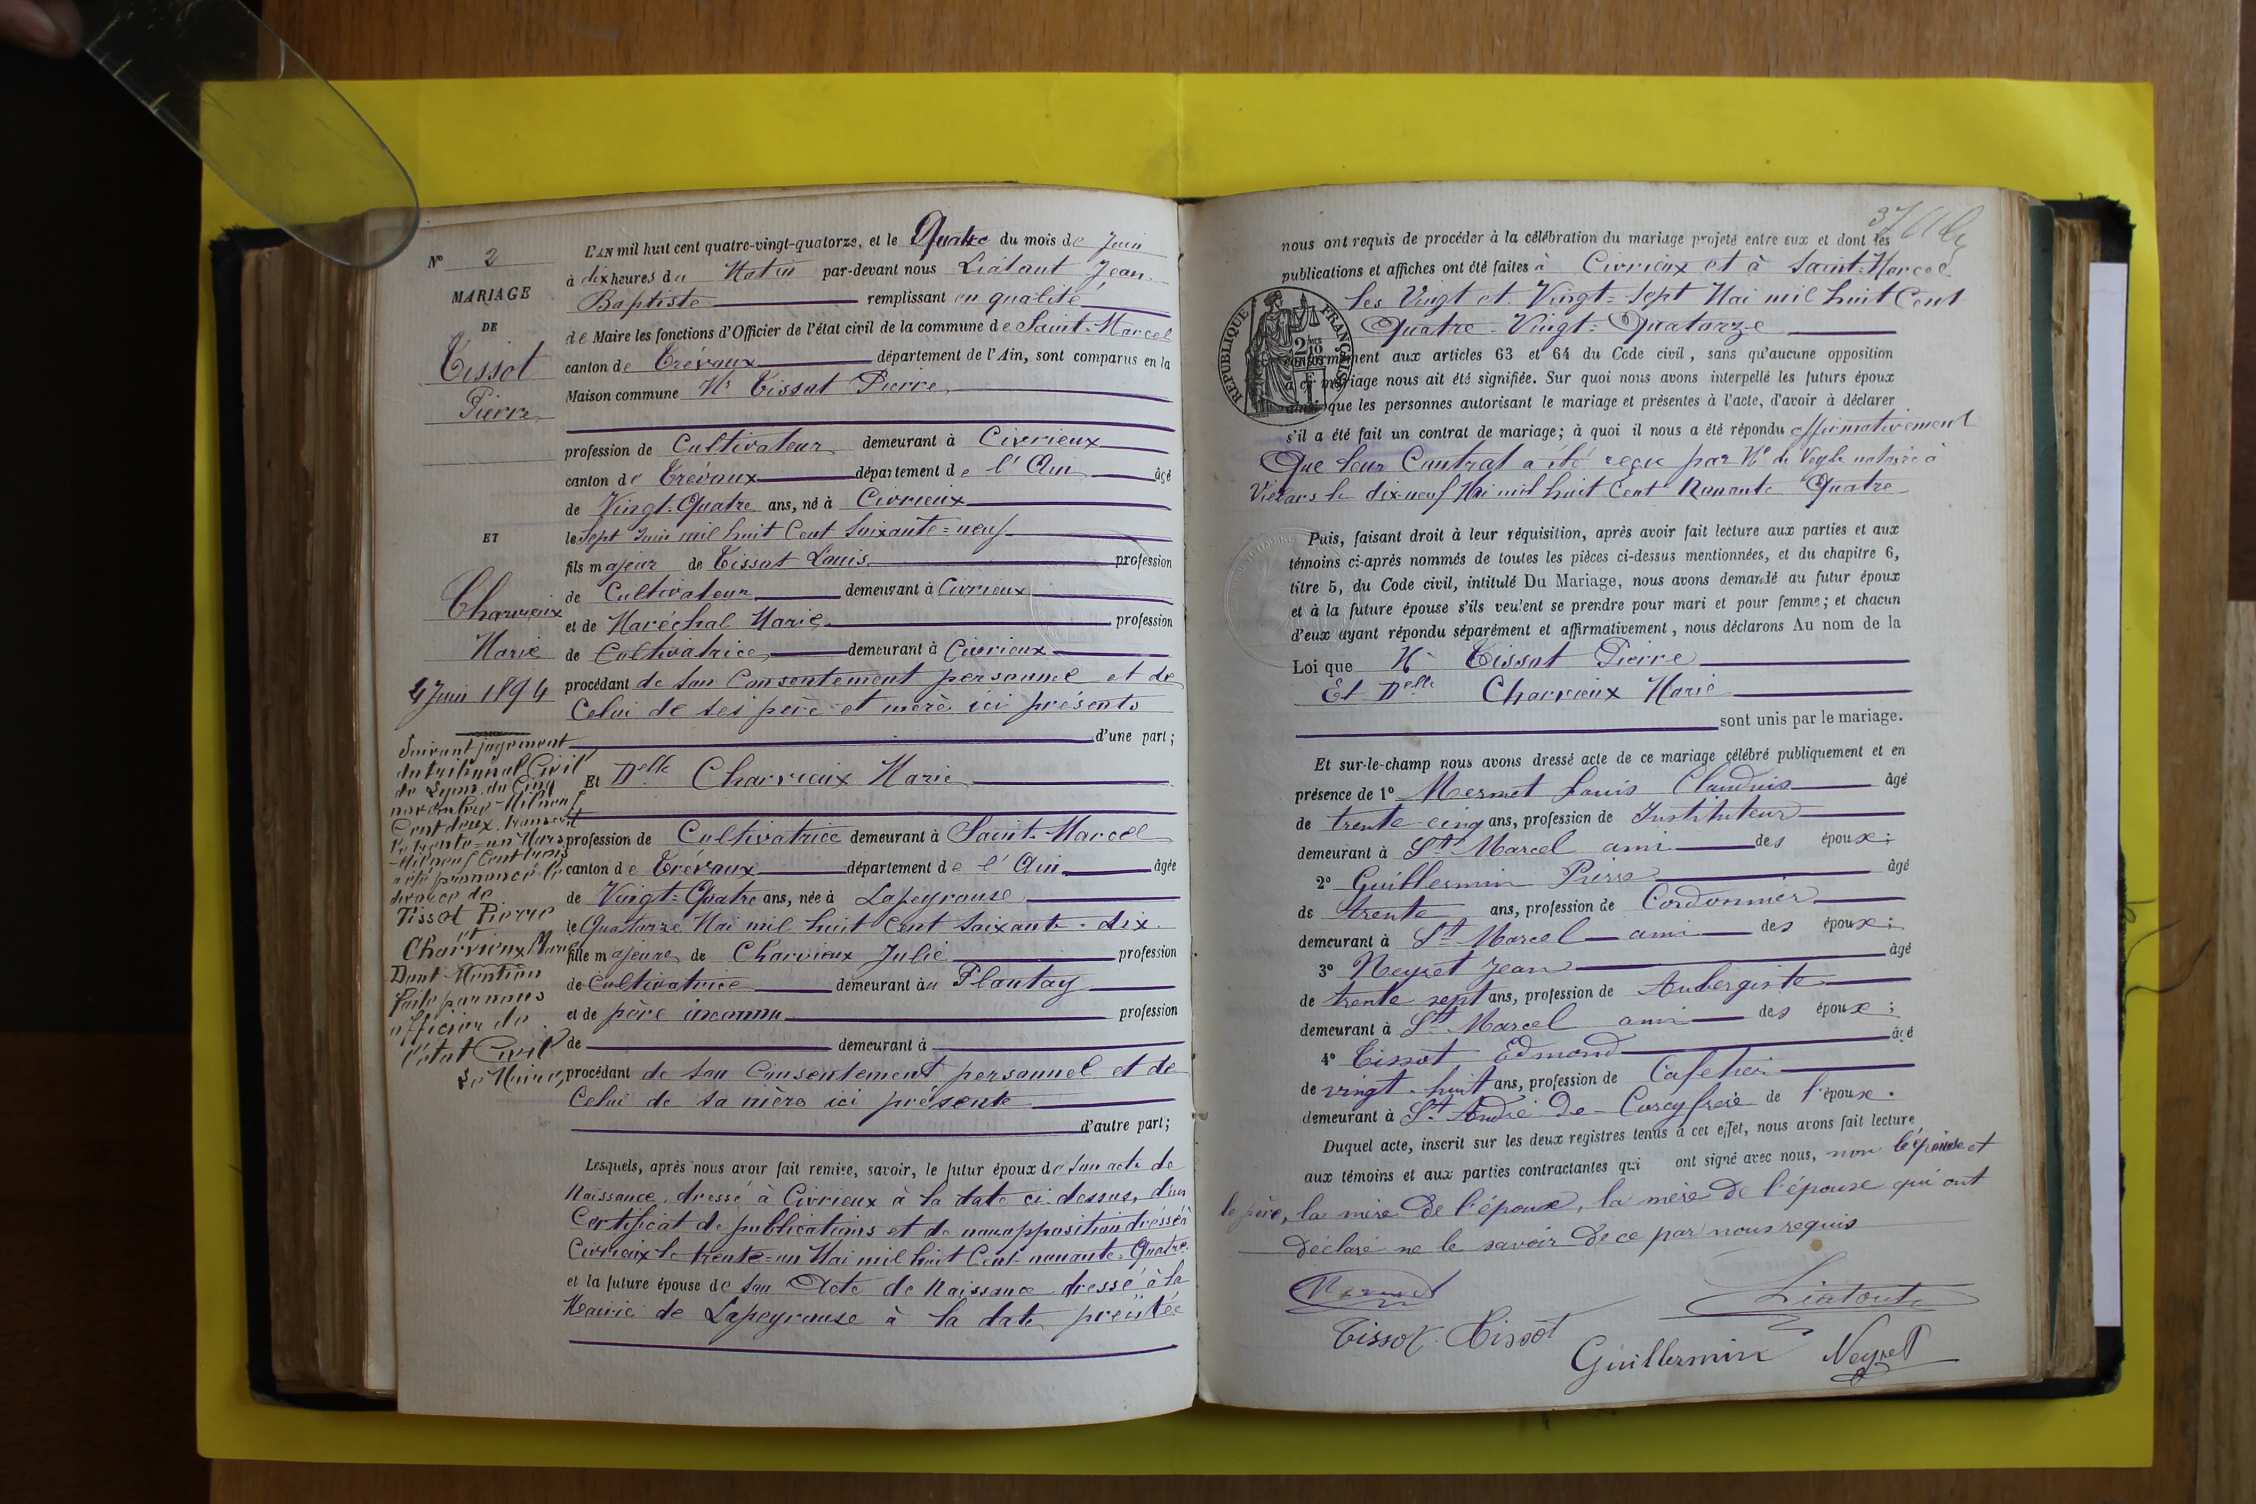 N° 2
MARIAGE
DE
Tissot
Pierre
ET
Charvieux
Marie
4 Juin 1894
Suivant jugement
du tribunal Civil
de Lyon du Cinq
novembre Mil neuf
Cent deux, transcrit
le trente=un Mars
Mil neuf Cent trois
a été prononcé le
divorce de
Tissot Pierre
et
Charvieux Marie
Dont Mention
faite par nous
officier de
l'état Civil
Le Maire,
L'AN mil huit cent quatre-vingt-quatorze, et le Quatre du mois de Juin
à dix heures du Matin par-devant nous Liatout Jean
Baptiste remplissant en qualité
de Maire les fonctions d'Officier de l'état civil de la commune de Saint-Marcel
canton de Trévoux département de l'Ain, sont comparus en la
Maison commune Mr Tissot Pierre
profession de Cultivateur demeurant à Civrieux
canton de Trévoux département de l'Ain âgé
de Vingt-Quatre ans, né à Civrieux
le Sept Juin mil huit Cent Soixante=neuf
fils majeur de Tissot Louis profession
de Cultivateur demeurant à Civrieux
et de Maréchal Marie profession
de Cultivatrice demeurant à Civrieux
procédant de son Consentement personnel et de
Celui de ses père et mère ici présents
d'une part;
Et Delle Charvieux Marie
profession de Cultivatrice demeurant à Saint-Marcel
canton de Trévoux département de l'Ain âgée
de Vingt=Quatre ans, née à Lapeyrouse
le Quatorze Mai mil huit Cent Soixante-dix
fille majeure de Charvieux Julie profession
de Cultivatrice demeurant au Plantay
et de père inconnu profession
de demeurant à
procédant de son Consentement personnel et de
Celui de sa mère ici présente
d'autre part;
Lesquels, après nous avoir fait remise, savoir, le futur époux de son acte de
Naissance dressé à Civrieux à la date ci-dessus, d'un
Certificat de publications et de non opposition dressé à
Civrieux le trente=un Mai mil huit Cent nonante-Quatre
et la future épouse de son Acte de Naissance dressé à la
Mairie de Lapeyrouse à la date précitée
37
nous ont requis de procéder à la célébration du mariage projeté entre eux et dont les
publications et affiches ont été faites à Civrieux et à Saint-Marcel
les Vingt et Vingt=Sept Mai mil huit Cent
Quatre-Vingt=Quatorze
RÉPUBLIQUE FRANÇAISE
conformément aux articles 63 et 64 du Code civil, sans qu'aucune opposition
à ce mariage nous ait été signifiée. Sur quoi nous avons interpellé les futurs époux
ainsi que les personnes autorisant le mariage et présentes à l'acte, d'avoir à déclarer
s'il a été fait un contrat de mariage; à quoi il nous a été répondu affirmativement
Que leur Contrat a été reçu par Me de Veyle notaire à
Villars le dix-neuf Mai mil huit Cent Nonante Quatre
Puis, faisant droit à leur réquisition, après avoir fait lecture aux parties et aux
témoins ci-après nommés de toutes les pièces ci-dessus mentionnées, et du chapitre 6,
titre 5, du Code civil, intitulé Du Mariage, nous avons demandé au futur époux
et à la future épouse s'ils veulent se prendre pour mari et pour femme; et chacun
d'eux ayant répondu séparément et affirmativement, nous déclarons Au nom de la
Loi que Mr Tissot Pierre
Et Delle Charvieux Marie
sont unis par le mariage.
Et sur-le-champ nous avons dressé acte de ce mariage célébré publiquement et en
présence de 1° Mermet Louis Claudius âgé
de trente cinq ans, profession de Instituteur
demeurant à St Marcel ami des époux;
2° Guillermin Pierre âgé
de trente ans, profession de Cordonnier
demeurant à St Marcel ami des époux;
3° Neyret Jean âgé
de trente sept ans, profession de Aubergiste
demeurant à St Marcel ami des époux;
4° Tissot Edmond âgé
de vingt-huit ans, profession de Cafetier
demeurant à St André de Corcy frère de l'époux.
Duquel acte, inscrit sur les deux registres tenus à cet effet, nous avons fait lecture
aux témoins et aux parties contractantes qui ont signé avec nous, non l'épouse et
le père, la mère de l'époux, la mère de l'épouse qui ont
déclaré ne le savoir de ce par nous requis
Mermet
Liatout
Tissot Tissot
Guillermin Neyret